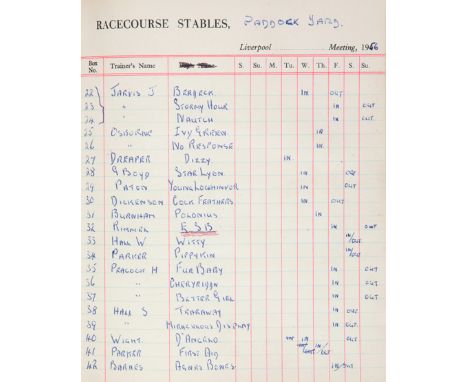 RACECOURSE STABLES, PADDOCK YARD.
Liverpool Meeting, 1956
Box No. Trainer's Name S. Su. M. Tu. W. Th. F. S. Su.
22 JARVIS J IN OUT
23 " STORMY HOUR IN OUT
24 " NAUTCH IN OUT
25 OSBORNE IVY GREEN IN
26 " NO RESPONSE IN
27 DREAPER DIZZY IN
28 G BOYD STAR LYON IN OUT
29 PATON YOUNG LOCHINVAR IN OUT
30 DICKENSON COCK FEATHERS IN OUT
31 BURNHAM POLONIUS IN
32 RIMELL E.S.B IN OUT
33 HALL W WITTY IN/OUT
34 PARKER PIPPYKIN IN/OUT
35 PEACOCK H FUR BABY IN OUT
36 " IN OUT
37 " BETTER GIRL IN OUT
38 HALL S IN OUT
39 " MIRACULOUS DISPLAY IN OUT
40 WIGHT D'ANGELO IN OUT
41 PARKER FIRST AID IN/OUT
42 BARNES AGNES BONES IN/OUT